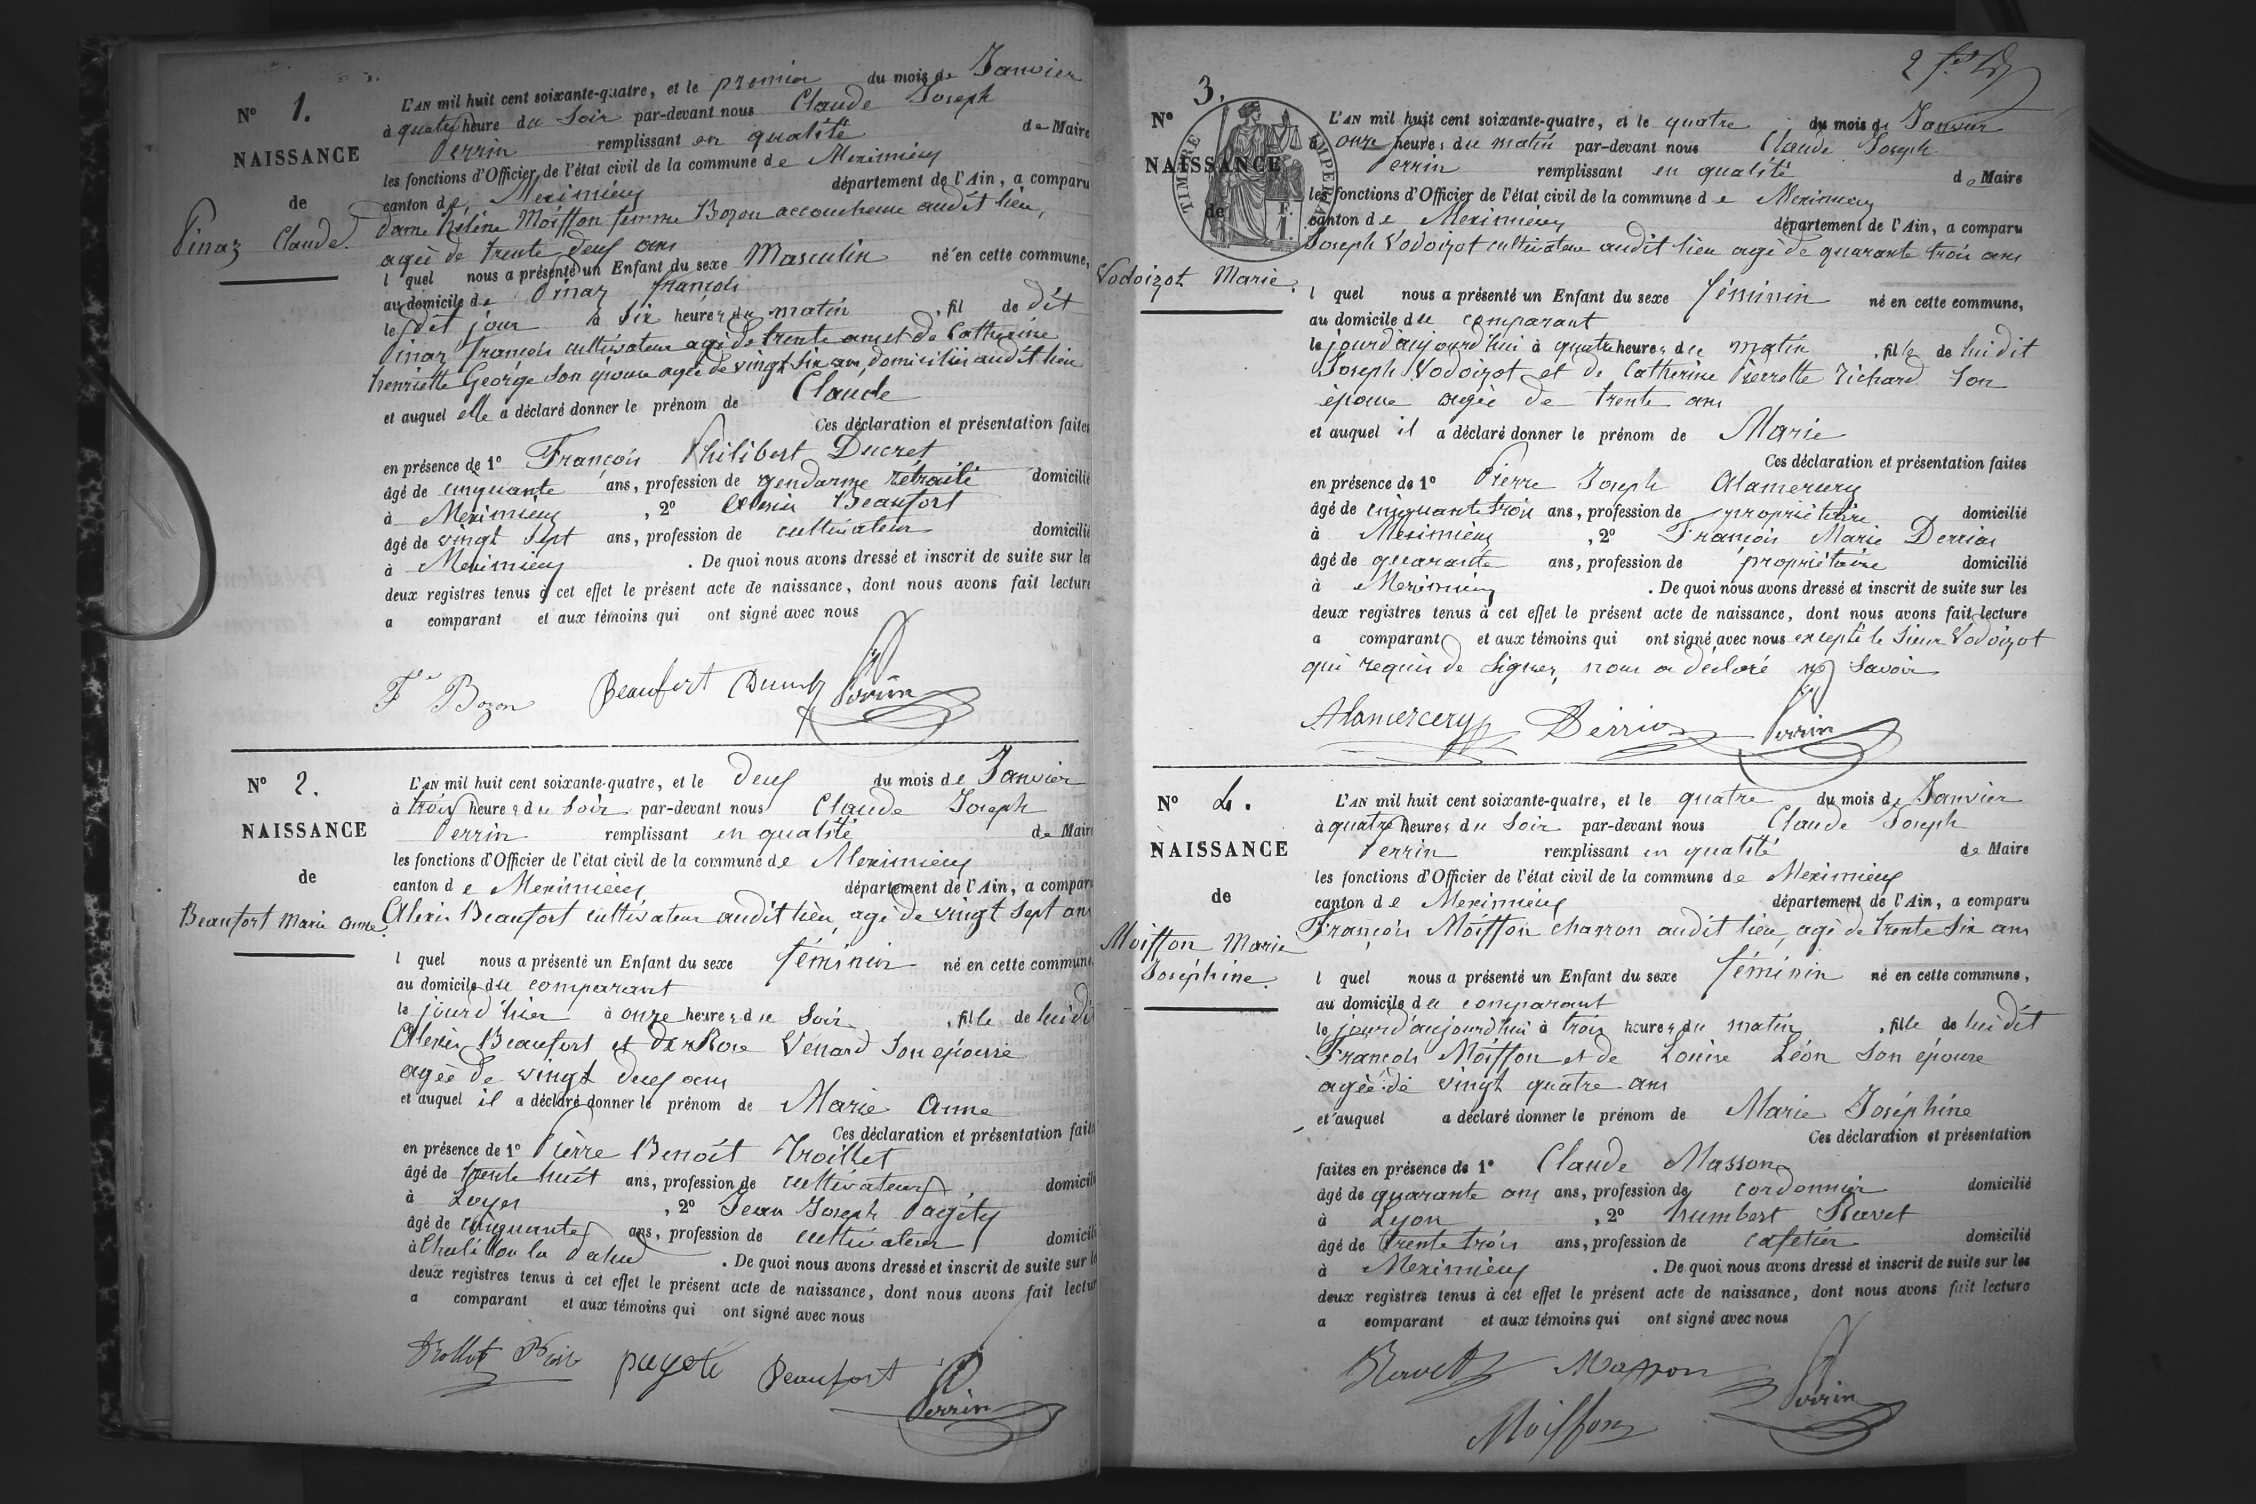 N° 1.
NAISSANCE
de
Pinaz Claude.
L'AN mil huit cent soixante-quatre, et le premier du mois de Janvier
à quatre heure du soir par-devant nous Claude Joseph
Perrin remplissant en qualité de Maire
les fonctions d'Officier de l'état civil de la commune de Meximieux
canton de Meximieux département de l'Ain, a comparu
dame hélène Moiffon femme Bozon accoucheuse audit lieu,
agée de trente deux ans
l quel nous a présenté un Enfant du sexe Masculin né en cette commune,
au domicile de Pinaz françois
le dit jour à six heures du matin , fil de dit
Pinaz françois cultivateur agé de trente ans et de Catherine
henriette George son épouse agée de vingt six ans, domiciliés audit lieu
et auquel elle a déclaré donner le prénom de Claude
Ces déclaration et présentation faites
en présence de 1° François Philibert Ducret
âgé de cinquante ans, profession de gendarme retraité domicilié
à Meximieux , 2° Alexis Beaufort
âgé de vingt sept ans, profession de cultivateur domicilié
à Meximieux . De quoi nous avons dressé et inscrit de suite sur les
deux registres tenus à cet effet le présent acte de naissance, dont nous avons fait lecture
a comparant et aux témoins qui ont signé avec nous
Fe Bozon Beaufort Ducret Perrin
N° 2.
NAISSANCE
de
Beaufort Marie Anne.
L'AN mil huit cent soixante-quatre, et le deux du mois de Janvier
à trois heures du soir par-devant nous Claude Joseph
Perrin remplissant en qualité de Maire
les fonctions d'Officier de l'état civil de la commune de Meximieux
canton de Meximieux département de l'Ain, a comparu
Alexis Beaufort cultivateur audit lieu, agé de vingt sept ans
l quel nous a présenté un Enfant du sexe féminin né en cette commune,
au domicile du comparant
le jour d'hier à onze heures du soir , fille de lui dit
Alexis Beaufort et de Rose Venard son épouse
agée de vingt deux ans
et auquel il a déclaré donner le prénom de Marie Anne
Ces déclaration et présentation faites
en présence de 1° Pierre Benoit Trollet
âgé de trente huit ans, profession de cultivateur domicilié
à Loyes , 2° Jean Joseph
âgé de cinquante ans, profession de cultivateur domicilié
à Chatillon la Palud . De quoi nous avons dressé et inscrit de suite sur les
deux registres tenus à cet effet le présent acte de naissance, dont nous avons fait lecture
a comparant et aux témoins qui ont signé avec nous
Trollet Beaufort Perrin
2 fo
N° 3.
TIMBRE IMPERIAL
F. 1.
NAISSANCE
de
Vodoizot Marie.
L'AN mil huit cent soixante-quatre, et le quatre du mois de Janvier
à onze heures du matin par-devant nous Claude Joseph
Perrin remplissant en qualité de Maire
les fonctions d'Officier de l'état civil de la commune de Meximieux
canton de Meximieux département de l'Ain, a comparu
Joseph Vodoizot cultivateur audit lieu agé de quarante trois ans
l quel nous a présenté un Enfant du sexe féminin né en cette commune,
au domicile du comparant
le jourd'aujourd'hui à quatre heures du matin , fille de lui dit
Joseph Vodoizot et de Catherine Pierrette Richard son
épouse agée de trente ans
et auquel il a déclaré donner le prénom de Marie
Ces déclaration et présentation faites
en présence de 1° Pierre Joseph Alamercery
âgé de cinquante trois ans, profession de propriétaire domicilié
à Meximieux , 2° François Marie Derrias
âgé de quarante ans, profession de propriétaire domicilié
à Meximieux . De quoi nous avons dressé et inscrit de suite sur les
deux registres tenus à cet effet le présent acte de naissance, dont nous avons fait lecture
a comparant et aux témoins qui ont signé avec nous excepté le sieur Vodoizot
qui requis de signer, nous a déclaré ne savoir
Alamercery Perrin
N° 4.
NAISSANCE
de
Moiffon Marie
Joséphine.
L'AN mil huit cent soixante-quatre, et le quatre du mois de Janvier
à quatre heures du soir par-devant nous Claude Joseph
Perrin remplissant en qualité de Maire
les fonctions d'Officier de l'état civil de la commune de Meximieux
canton de Meximieux département de l'Ain, a comparu
François Moiffon charron audit lieu, agé de trente six ans
l quel nous a présenté un Enfant du sexe féminin né en cette commune,
au domicile du comparant
le jourd'aujourd'hui à trois heures du matin , fille de lui dit
François Moiffon et de Louise Léon son épouse
agée de vingt quatre ans
et auquel a déclaré donner le prénom de Marie Joséphine
Ces déclaration et présentation
faites en présence de 1° Claude Masson
âgé de quarante ans ans, profession de cordonnier domicilié
à Lyon , 2° humbert Ravet
âgé de trente trois ans, profession de cafetier domicilié
à Meximieux . De quoi nous avons dressé et inscrit de suite sur les
deux registres tenus à cet effet le présent acte de naissance, dont nous avons fait lecture
a comparant et aux témoins qui ont signé avec nous
Ravet Masson Perrin
Moiffon